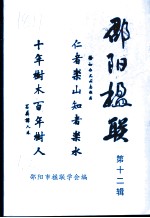 邵阳楹联
第十二辑
仁者樂山知者樂水
十年樹木百年樹人
邵阳市楹联学会编